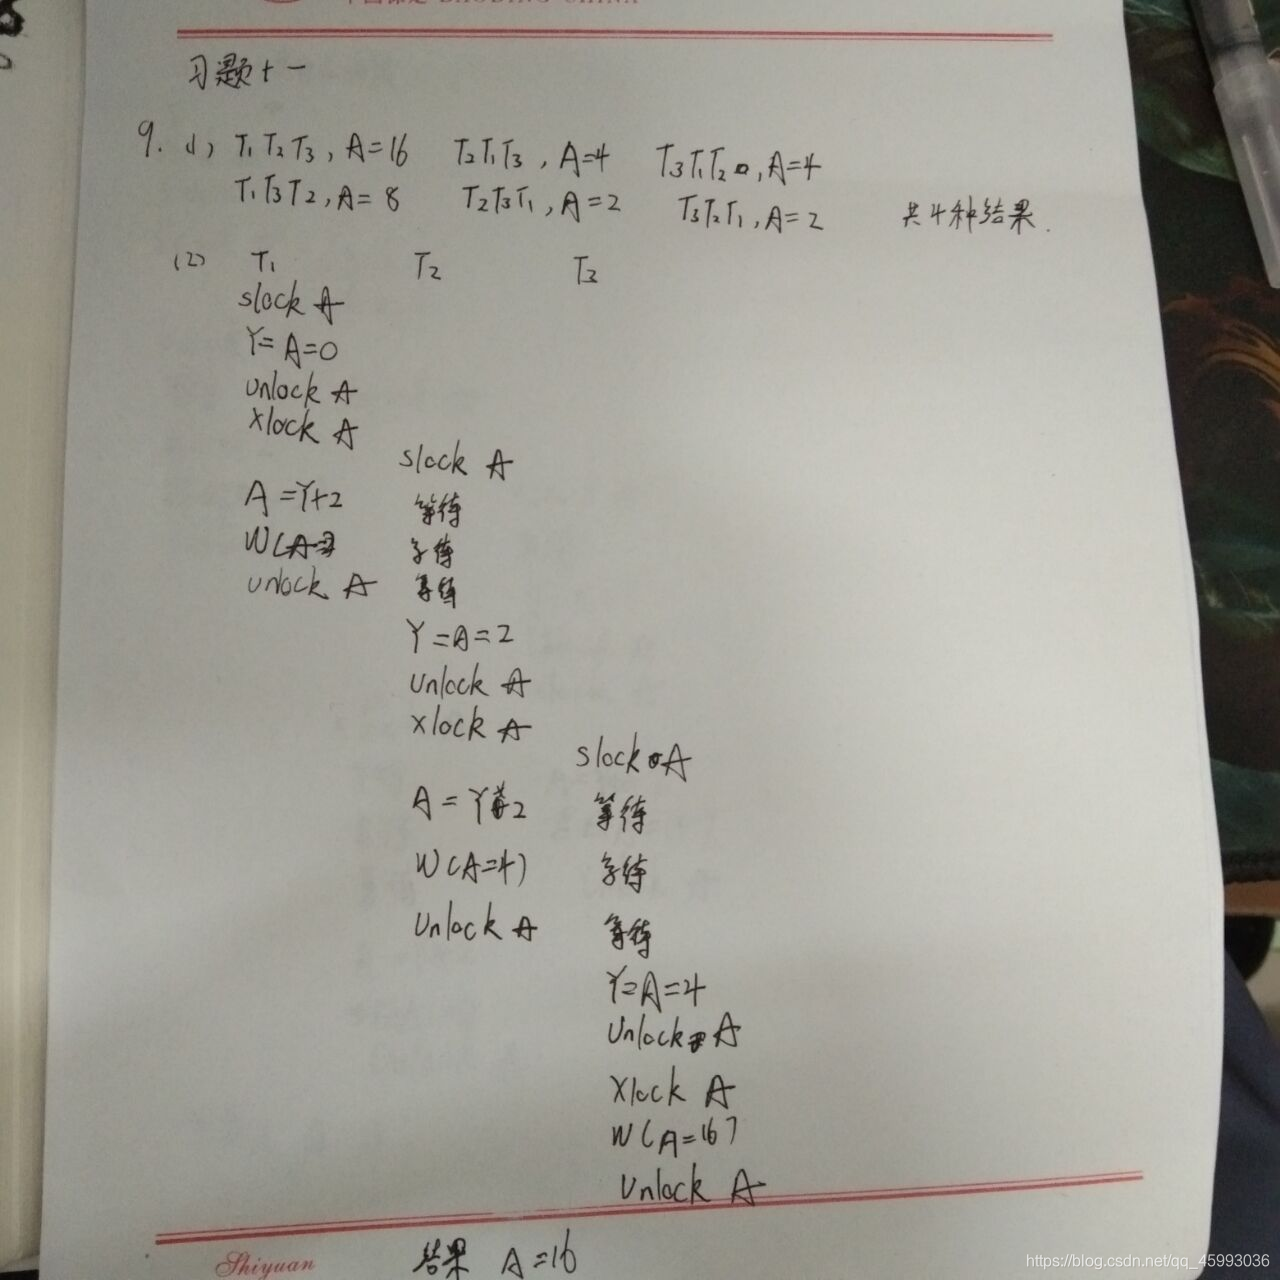 BAODING CHINA
习题十一
9. (1) T1 T2 T3, A=16 T2T1T3, A=4 T3T1T2, A=4
T1T3T2, A=8 T2T3T1, A=2 T3T2T1, A=2 共4种结果.
(2) T1 T2 T3
slock A
Y=A=0
unlock A
xlock A
slock A
A=Y+2 等待
W(A 等待
unlock A 等待
Y=A=2
Unlock A
xlock A
slock A
A=Y 2 等待
W(A=4) 等待
Unlock A 等待
Y=A=4
Unlock A
Xlock A
W(A=16)
Unlock A
结果 A=16
Shiyuan
https://blog.csdn.net/qq_45993036